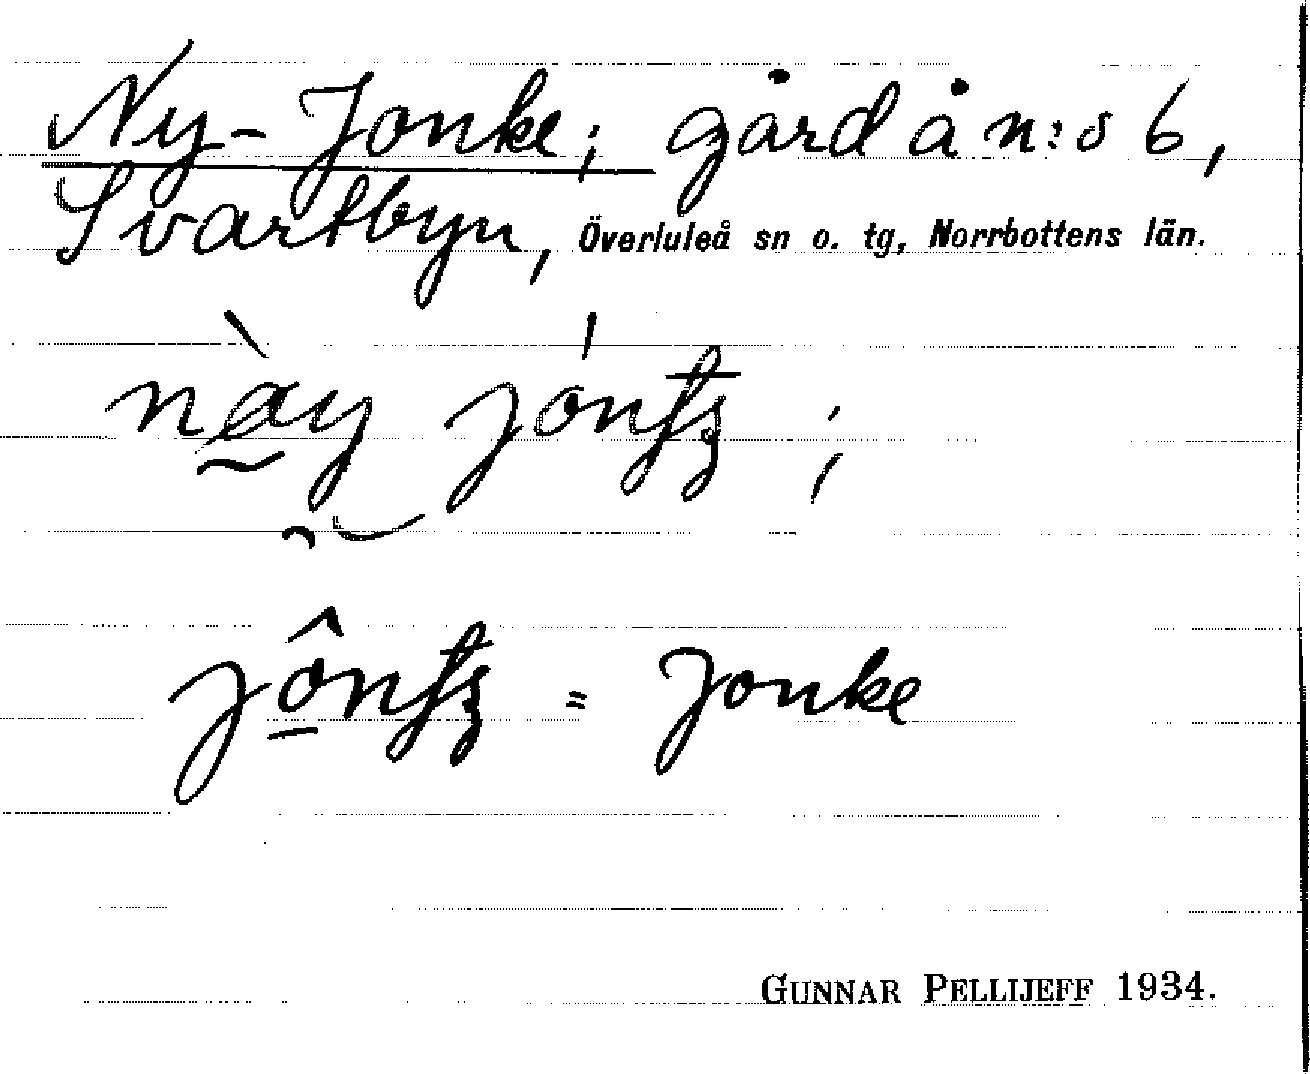 Ny-Jonke; gård å n:o 6,
Svartbyn, Överluleå sn o. tg, Norrbottens län.
= Jonke
GUNNAR PELLIJEFF 1934.